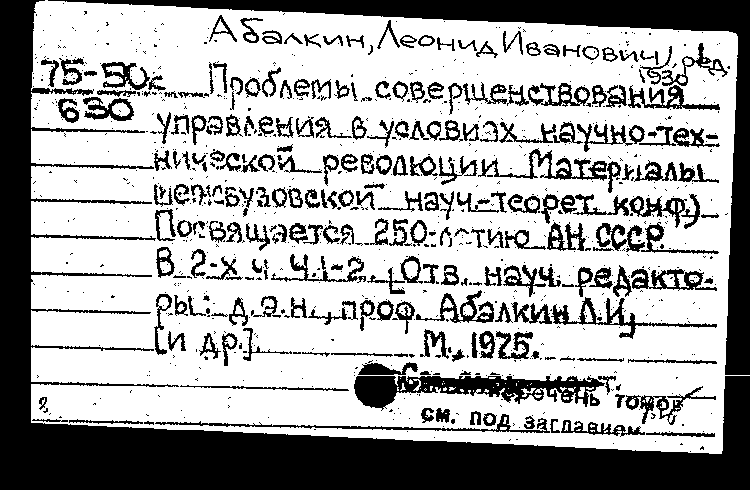 Абалкин, Леонид Иванович, ред.
1930
75-50с Проблемы совершенствования
630 управления в условиях научно-тех-
нической революции. (Материалы
межвузовской науч.-теорет. конф.)
Посвящается 250-летию АН СССР.
В 2-х ч. Ч.1-2. [Отв. науч. редакто-
ры: д.э.н., проф. Абалкин Л.И.,
[и др.]. М., 1975.
перечень томов
см. под заглавием